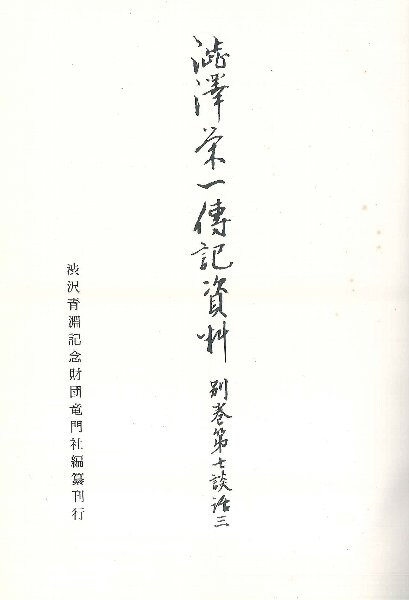 澁澤栄一傳記資料
別巻第七談話三
渋沢青淵記念財団竜門社編纂刊行